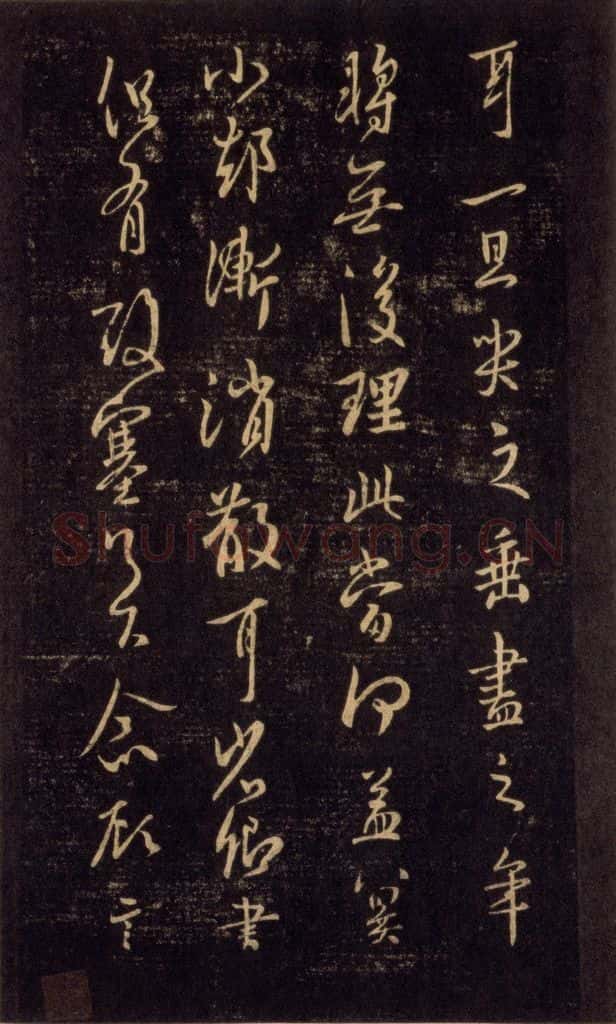 耳一旦哭之垂盡之年
將無復理此當何益冀
小却漸消散耳省卿書
但有塞足下念言
Shufawang.CN